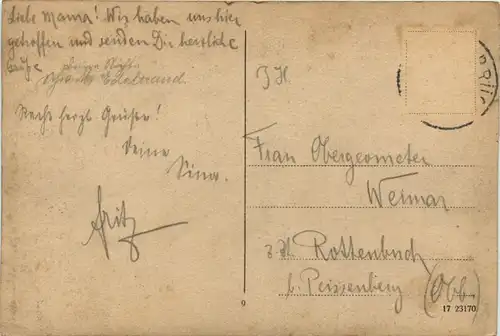 Liebe Mama! Wir haben uns hier
getroffen und senden Dir herzliche
Grüße
Recht herzl. Grüße!
Deine
Fritz
I H
Frau Obergeometer
Weimar
z. Zt. Rottenbuch
b. Peissenberg (Obb.)
9
17 23170